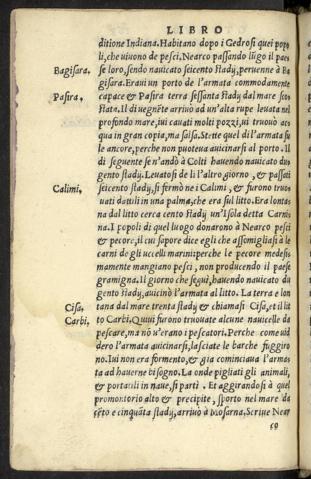 LIBRO
ditione Indiana. Habitano dopo i Gedrosi quei popo
li, che viuono de pesci. Nearco passando lũgo il pae
Bagisara. se loro, sendo nauicato seicento stadij, peruenne à Ba
gisara. Eraui un porto de l'armata commodamente
Pasira. capace & Pasira terra sessanta stadij dal mare sco-
stata. Il dì uegnẽte arriuò ad un'alta rupe leuata nel
profondo mare, iui cauati molti pozzi, ui trouò ac-
qua in gran copia, ma salsa. Stette quel dì l'armata su
le ancore, perche non poteua auicinarsi al porto. Il
dì seguente se n'andò à Colti hauendo nauicato du-
gento stadij. Leuatosi de lì l'altro giorno, & passati
Calimi, seicento stadij, si fermò ne i Calimi, & furono troue
uati dattili in una palma, che era sul litto. Era lonta-
na dal litto cerca cento stadij un'Isola detta Carni-
na. I popoli di quel luogo donarono à Nearco pesci
& pecore, il cui sapore dice egli che assomigliasi à le
carni de gli uccelli marini: perche le pecore medesi-
mamente mangiano pesci, non producendo il paese
gramigna. Il giorno che seguì, hauendo nauicato du
gento stadij, auicinò l'armata al litto. La terra è lon
Cisa. tana dal mare trenta stadij & chiamasi Cisa, et il lit
Carbi. to Carbi. Quiui furono trouate alcune nauicelle da
pescare, ma nõ u'erano i pescatori. Perche come uid
dero l'armata auicinarsi, lasciate le barche fuggiro
no. Iui non era formento, & già cominciaua l'arma-
ta ad hauerne bisogno. La onde pigliati gli animali,
& portatili in naue, si partì. Et aggirandosi à quel
promontorio alto & precipite, sporto nel mare da
cẽto e cinquãta stadij, arriuò à Mosarna. Scriue Near